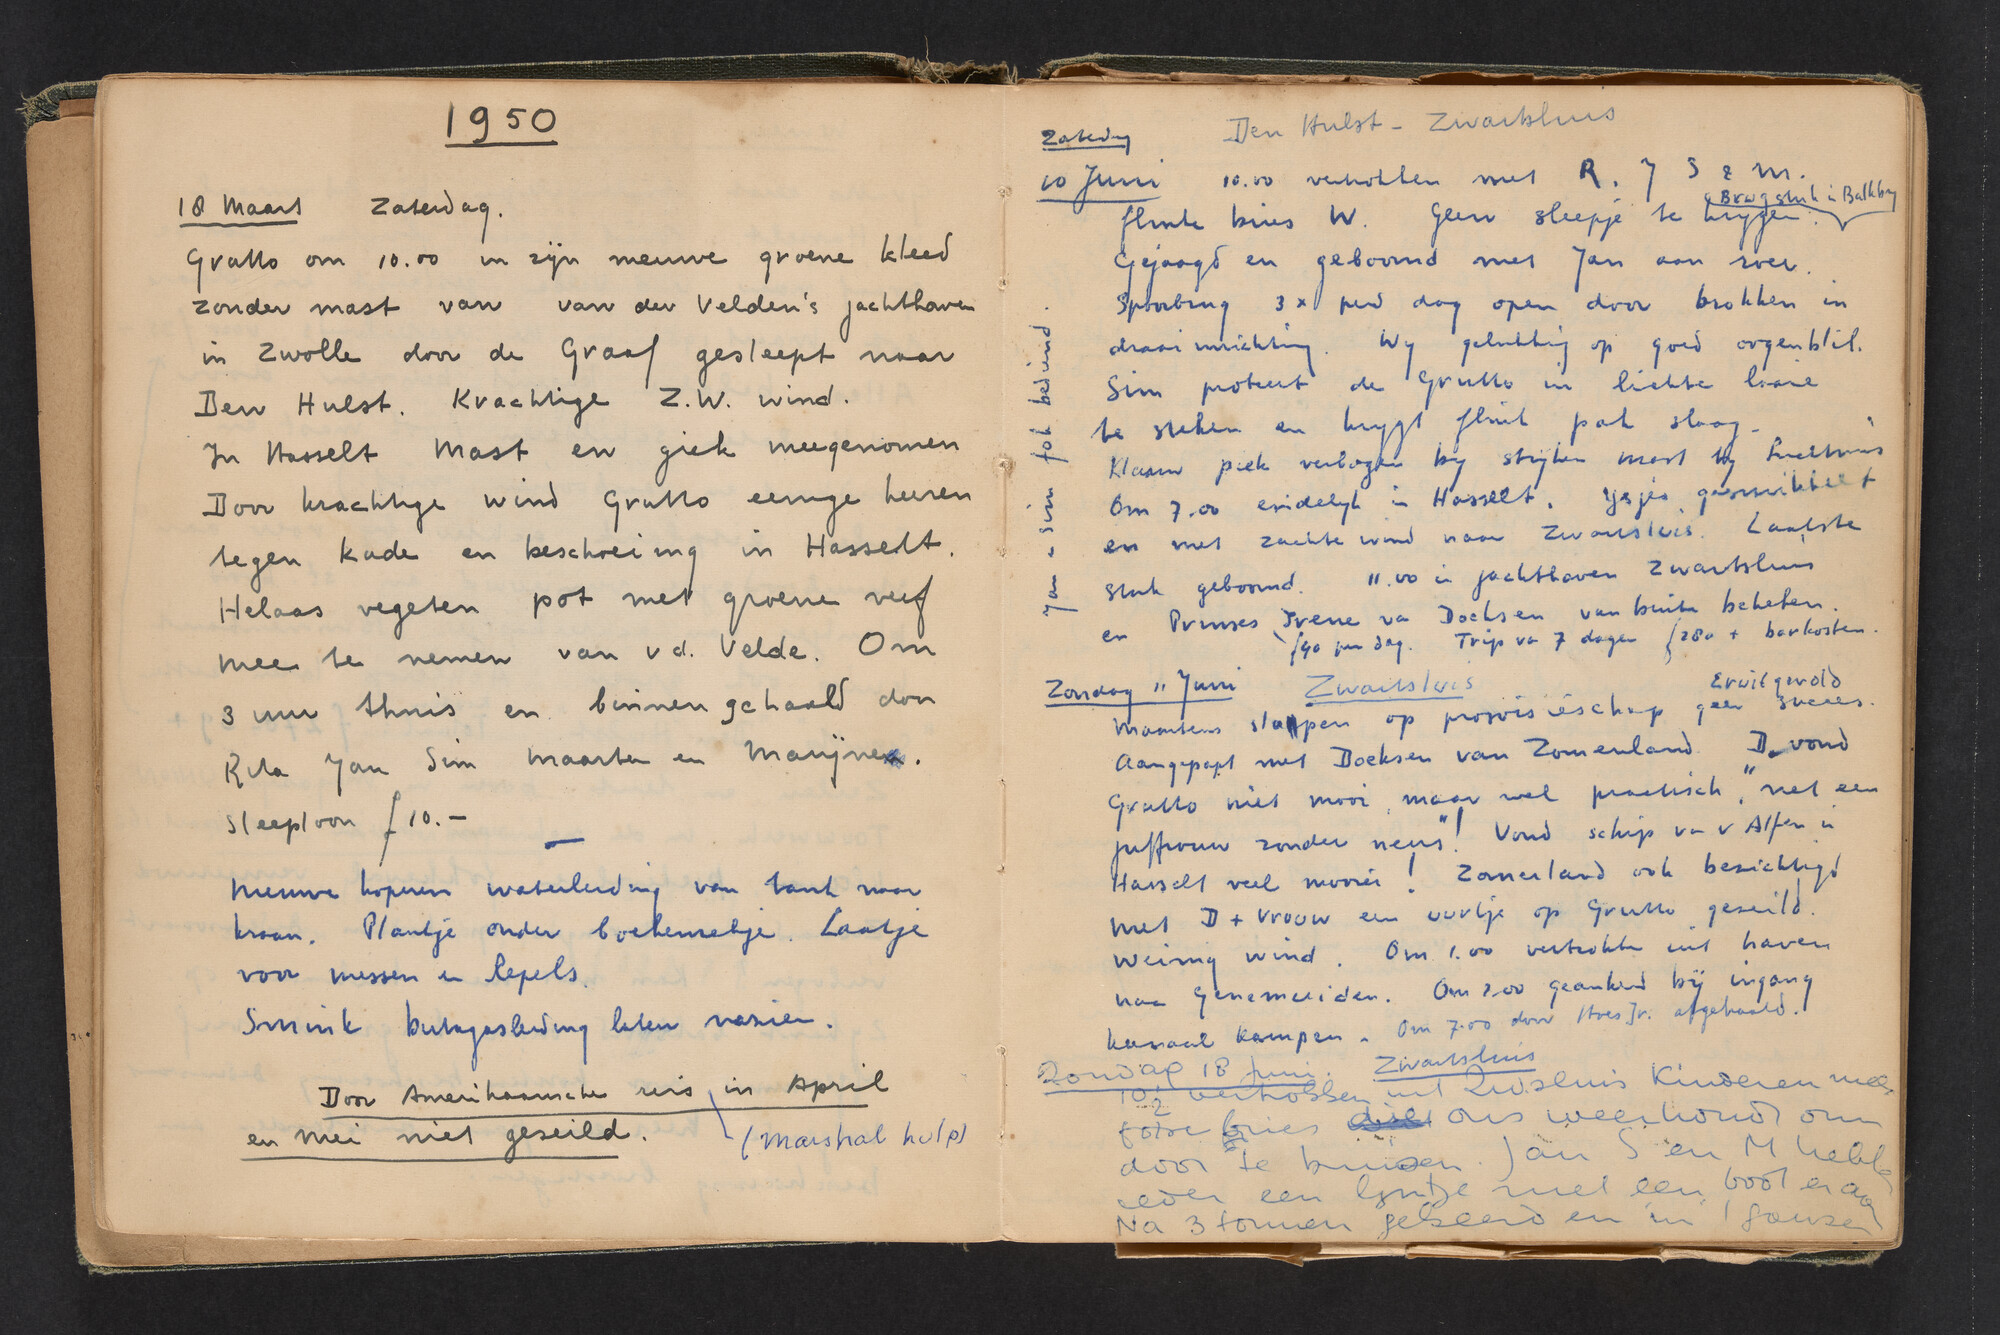 1950
18 Maart Zaterdag.
Grutto om 10.00 in zijn nieuwe groene kleed
zonder mast van van der Velden's jachthaven
in Zwolle door de Graaf gesleept naar
Den Hulst. Krachtige Z.W. wind.
In Hasselt Mast en giek meegenomen
Door krachtige wind Grutto eenige keeren
tegen kade en beschoeiing in Hasselt.
Helaas vegeten pot met groene verf
mee te nemen van v d. Velde. Om
3 uur thuis en binnengehaald door
Rita Jan Sim Maarten en Marijne.
Sleeploon f 10.-
Nieuwe koperen waterleiding van tank naar
kraan. Plankje onder boekenrekje. Laatje
voor messen en lepels.
Smink butagasleiding laten nazien.
Door Amerikaansche reis in April
en Mei niet gezeild.
(Marshal hulp)
Den Hulst - Zwartsluis
Zaterdag
10 Juni 10.00 vertrokken met R. J S & M.
Brugstuk in Balkbrug
flinke bries W. Geen sleepje te krygen.
Gejaagd en geboomd met Jan aan roer.
Spoorbrug 3x per dag open door brokken in
draai inrichting. Wy gelukkig op goed oogenblik.
Sim probeert de Grutto in lichte laaie
te steken en krygt flink pak slaag.
Klaauw piek verbogen by stryken mast by
Om 7.00 eindelyk in Hasselt. Ijsjes gesmikkeld
en met zachte wind naar Zwartsluis. Laatste
stuk geboomd. 11.00 in jachthaven Zwartsluis
en Prinses Irene va Doeksen van buiten bekeken.
f40 per dag. Trip va 7 dagen f 280 + barkosten.
Jan - Sim fok bediend.
Zondag 11 Juni Zwartsluis
Maartens stappen op provisieschap geen succes.
Aangepapt met Doeksen van Zomerland. D. vond
Grutto niet mooi, maar wel practisch, "net een
juffrouw zonder neus"! Vond schip va v Alfen in
Hasselt veel mooier! Zomerland ook bezichtigd
met D + vrouw een uurtje op Grutto gezeild.
Weinig wind. Om 1.00 vertrokken uit haven
naar Genemuiden. Om 2.00 geankerd bij ingang
kanaal Kampen. Om 7.00 door Hoes Jr. afgehaald.
Zondag 18 Juni. Zwartsluis
10½ vertrokken uit Zwtsluis Kinderen mee
forse bries ons weerhoudt om
door te kruisen. Jan S en M hebb
ieder een lyntje met een boot eraan
Na 3 tonnen gekeerd en in 1